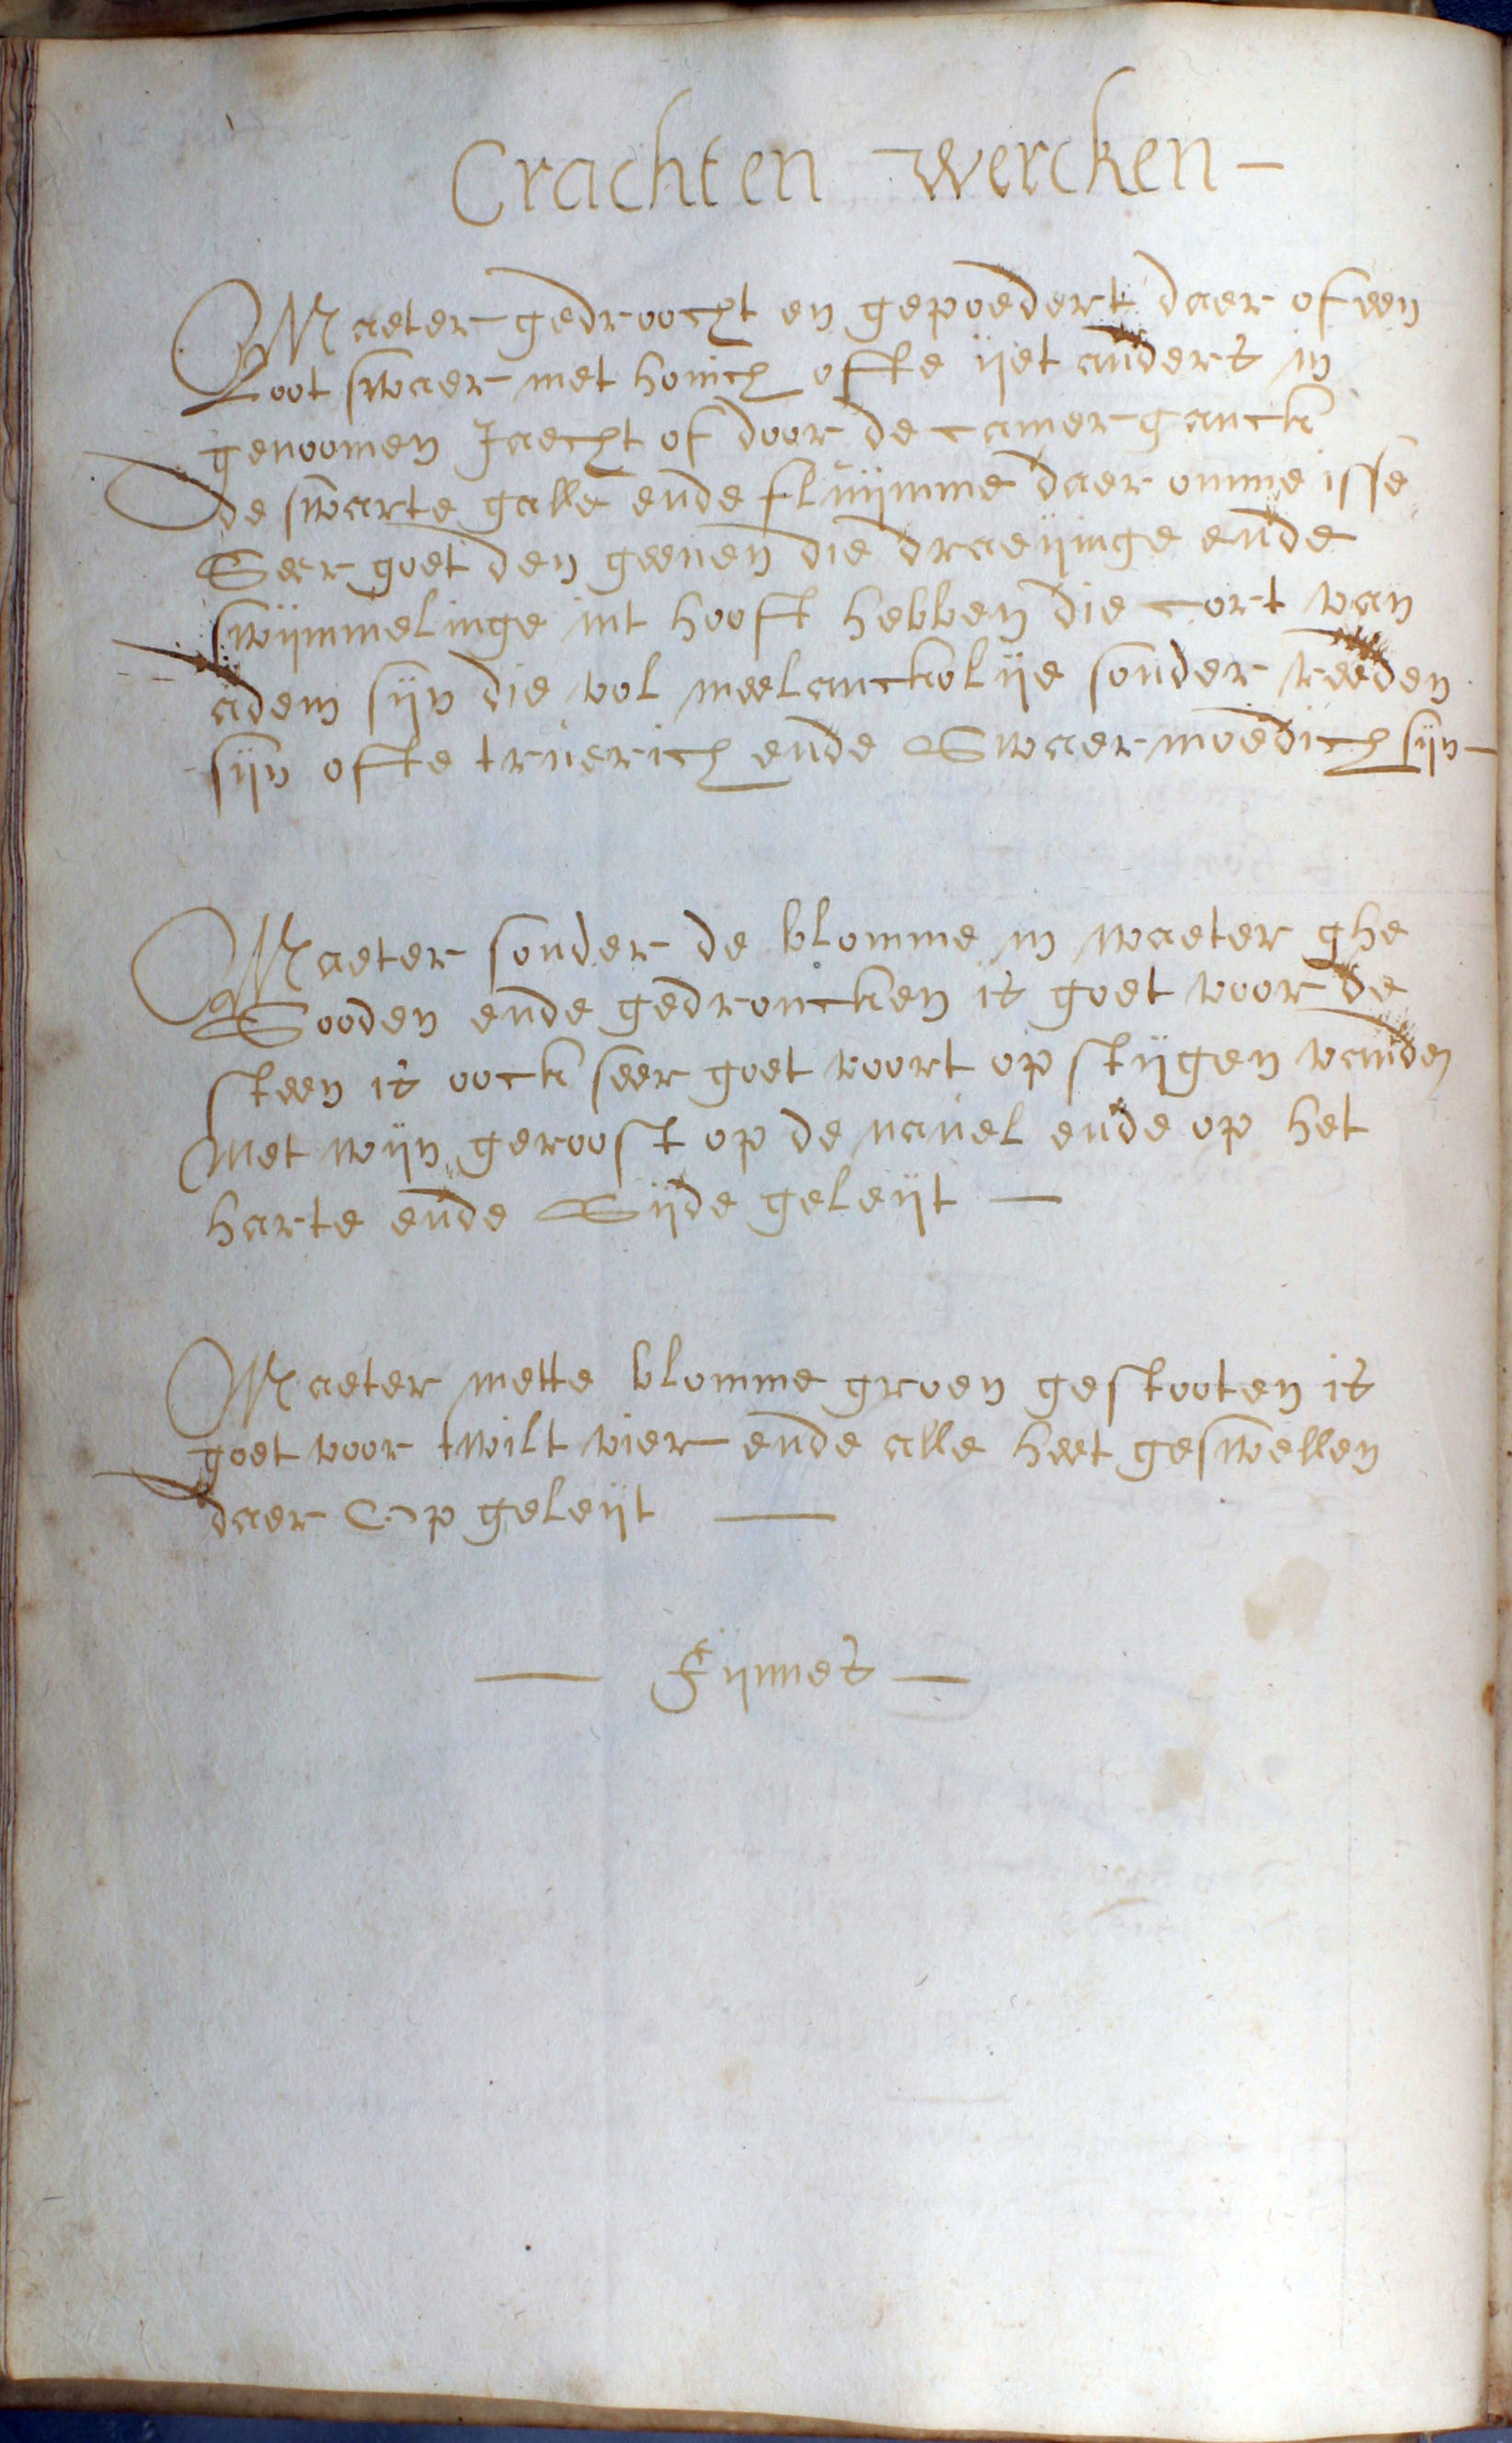 Crachten wercken -
Maeter gedroocht en gepoedert daer of een
Loot swaer met honich ofte ijet anders in
genoomen Jaecht of door de camerganck
de swarte galle ende fluijmme daer omme isse
Seer goet den geenen die draeijinge ende
swijmmelinge int hooft hebben die cort van
adem sijn die vol meelanckolije sonder reeden
sijn ofte truerich ende Swaermoedich sijn -
Maeter sonder de blomme in waeter ghe
Sooden ende gedroncken is goet voor de
steen is oock seer goet voort op stijgen vande
Met wijn geroost op de navel ende op het
harte ende Sijde geleijt —
Maeter mette blomme groen gestooten is
goet voor twilt vier ende alle heet geswellen
daer Op geleijt —
— Fijnnes —